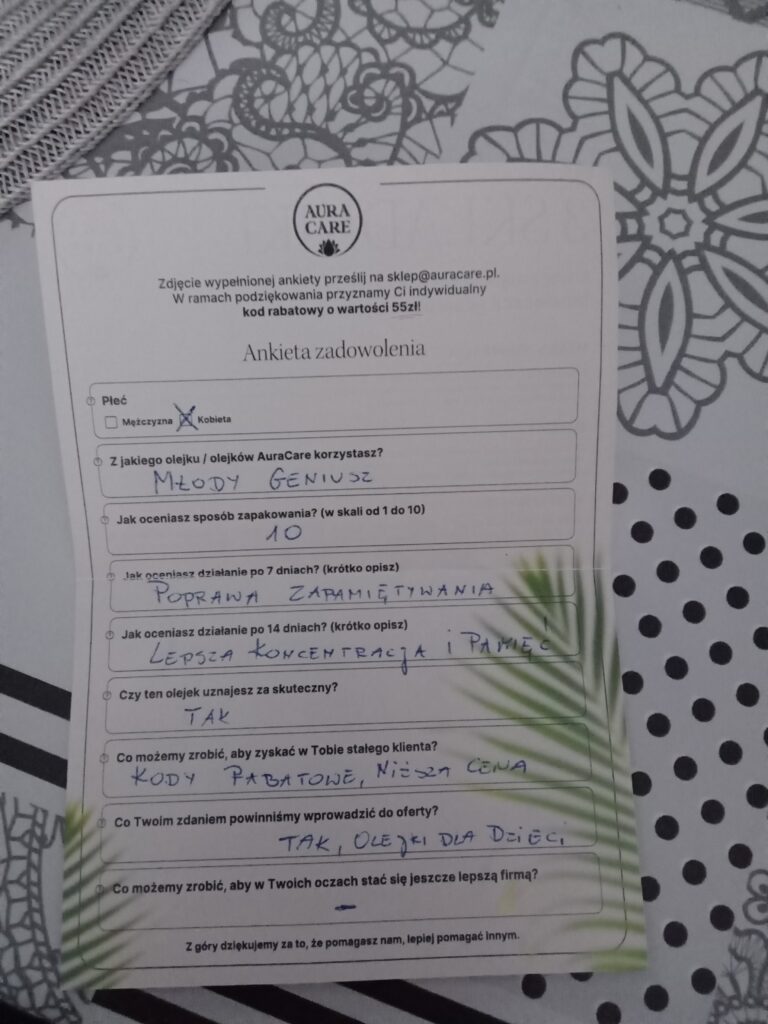 AURA
CARE
Zdjęcie wypełnionej ankiety prześlij na sklep@auracare.pl.
W ramach podziękowania przyznamy Ci indywidualny
kod rabatowy o wartości 55zł!
Ankieta zadowolenia
Płeć
Mężczyzna Kobieta
Z jakiego olejku / olejków AuraCare korzystasz?
MŁODY GENIUSZ
Jak oceniasz sposób zapakowania? (w skali od 1 do 10)
10
Jak oceniasz działanie po 7 dniach? (krótko opisz)
POPRAWA ZAPAMIĘTYWANIA
Jak oceniasz działanie po 14 dniach? (krótko opisz)
LEPSZA KONCENTRACJA i PAMIĘĆ
Czy ten olejek uznajesz za skuteczny?
TAK
Co możemy zrobić, aby zyskać w Tobie stałego klienta?
KODY RABATOWE, NIŻSZA CENA
Co Twoim zdaniem powinniśmy wprowadzić do oferty?
TAK, OLEJKI DLA DZIECI
Co możemy zrobić, aby w Twoich oczach stać się jeszcze lepszą firmą?
-
Z góry dziękujemy za to, że pomagasz nam, lepiej pomagać innym.